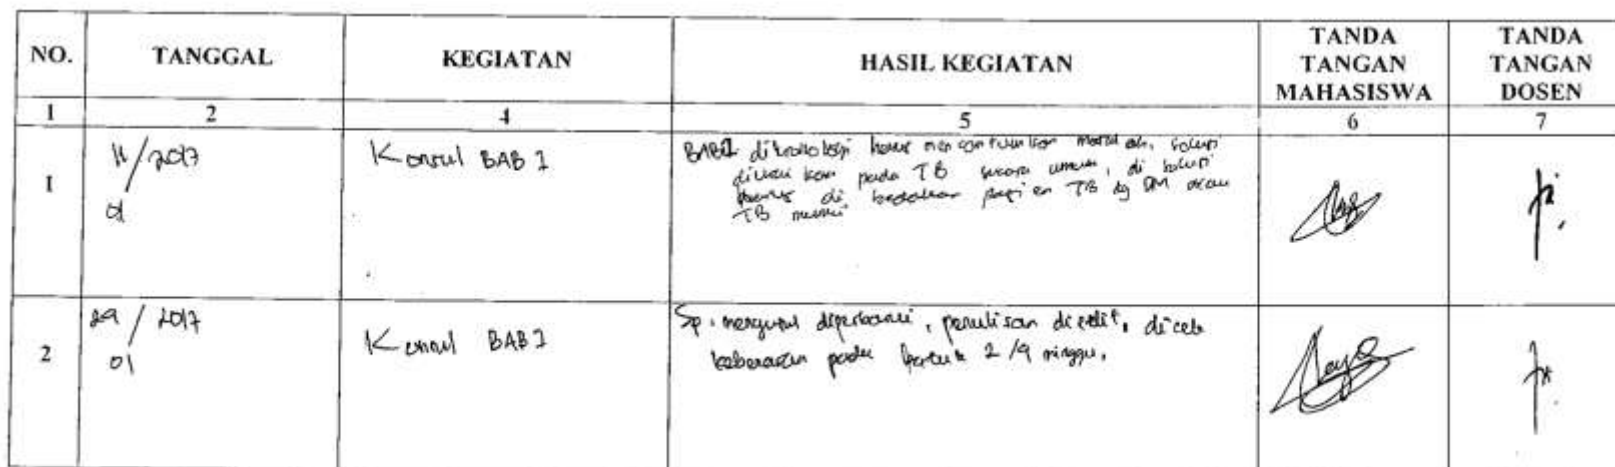 NO. TANGGAL KEGIATAN HASIL KEGIATAN TANDA TANGAN MAHASISWA TANDA TANGAN DOSEN
1 2 4 5 6 7
1 11/2017 Konsul BAB I BAB I harus mencantumkan masalah, solusi
01 pada TB secara umum, di solusi
harus di bedakan pasien TB dg DM atau
TB murni
2 29/2017 Konsul BAB I Sp. diperbarui, penulisan diedit, dicek
01 pada 2/4 minggu.